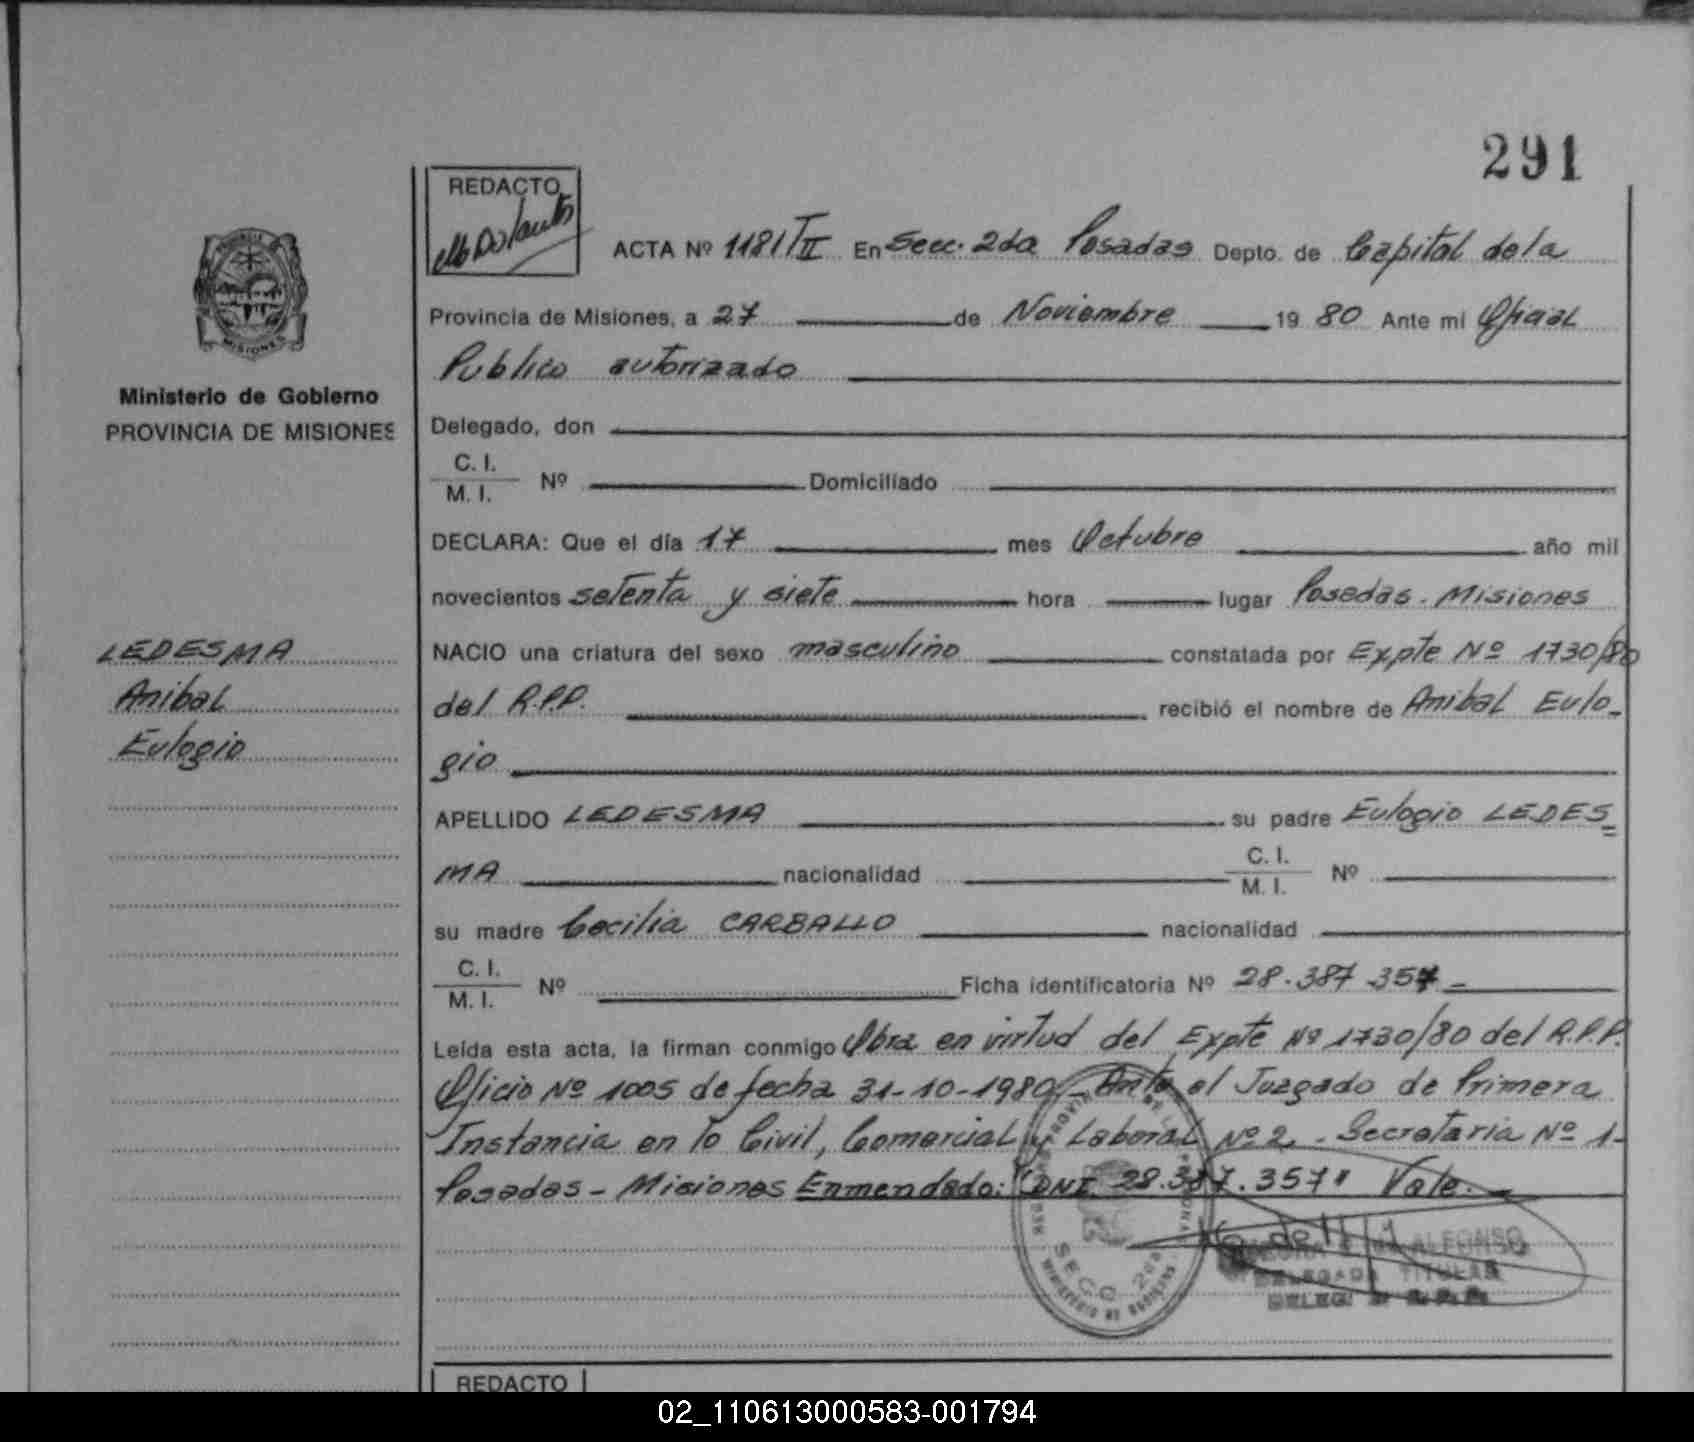 291
REDACTO
ACTA Nº 1181/T II En Secc. 2da Posadas Depto. de Capital de la
Provincia de Misiones, a 27 de Noviembre 19 80 Ante mi Oficial
Publico autorizado
MISIONES
Ministerio de Gobierno
PROVINCIA DE MISIONES
Delegado, don
C. I.
M. I. Nº Domiciliado
DECLARA: Que el día 17 mes Octubre año mil
novecientos setenta y siete hora lugar Posadas. Misiones
LEDESMA
Anibal
Eulogio
NACIO una criatura del sexo masculino constatada por Expte Nº 1730/80
del R.P.P. recibió el nombre de Anibal Eulo-
gio
APELLIDO LEDESMA su padre Eulogio LEDES=
MA nacionalidad C. I. M. I. Nº
su madre Cecilia CARBALLO nacionalidad
C. I.
M. I. Nº Ficha identificatoria Nº 28.387.357-
Leída esta acta, la firman conmigo Obra en virtud del Expte Nº 1730/80 del R.P.P.
Oficio Nº 1005 de fecha 31-10-1980 - Ante el Juzgado de Primera
Instancia en lo Civil, Comercial y Laboral Nº 2. - Secretaria Nº 1-
Posadas - Misiones Enmendado: "DNI. 28.387.357" Vale.
SECC. 2da
ALFONSO
DELEGADA TITULAR
REDACTO
02_110613000583-001794